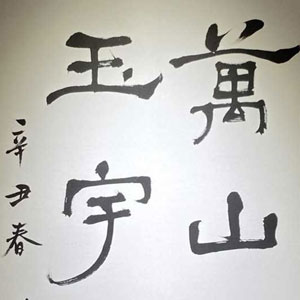 萬山
玉宇
辛丑春